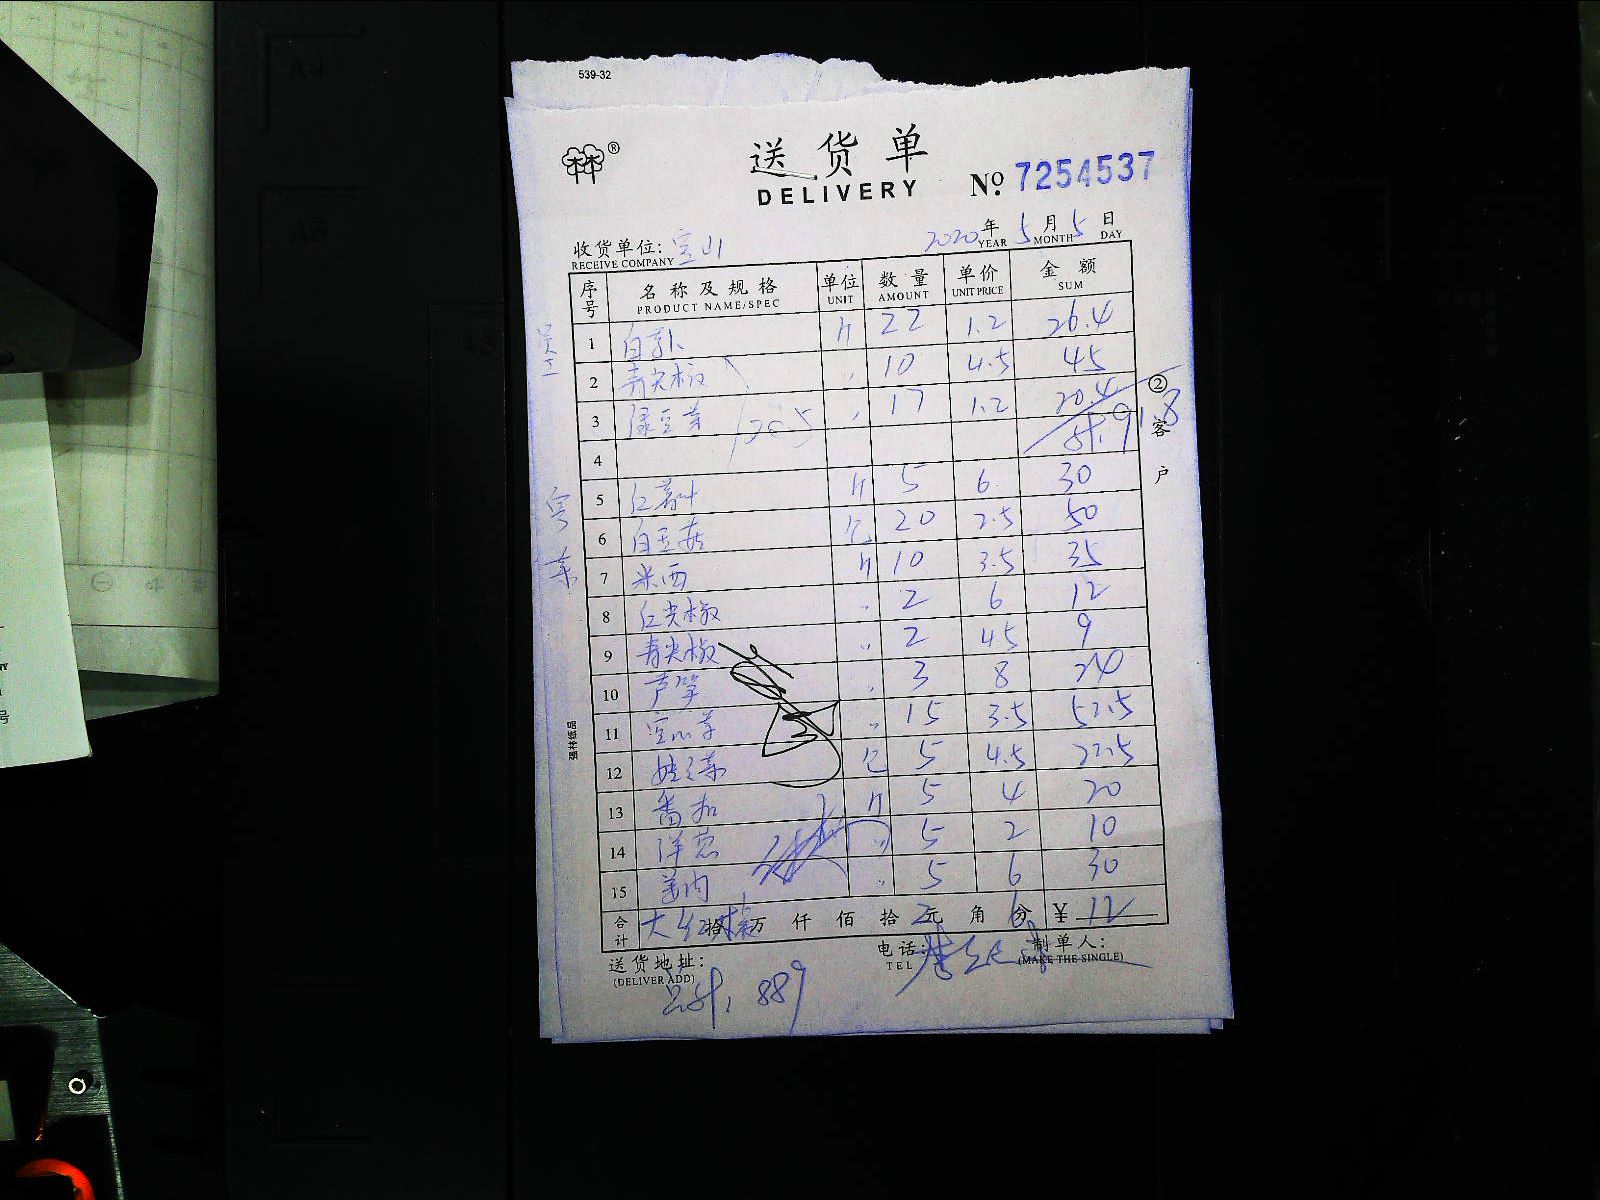 539-32
送货单
DELIVERY
No. 7254537
收货单位: 宝山 2020年 5月 5日
RECEIVE COMPANY YEAR MONTH DAY
序号 名称及规格 单位 数量 单价 金额
PRODUCT NAME/SPEC UNIT AMOUNT UNIT PRICE SUM
1 白萝卜 斤 22 1.2 26.4
2 青尖椒 〃 10 4.5 45
3 绿豆芽 〃 17 1.2 20.4
4 91.8
5 5 6 30
6 白玉菇 包 20 2.5 50
7 米西 斤 10 3.5 35
8 红尖椒 〃 2 6 12
9 青尖椒 〃 2 4.5 9
10 芦笋 〃 3 8 24
11 空心菜 〃 15 3.5 52.5
12 娃娃菜 包 5 4.5 22.5
13 番茄 斤 5 4 20
14 洋葱 〃 5 2 10
15 〃 5 6 30
合计 大红椒 拾 万 仟 佰 拾 2 元 角 6 分 ¥ 12
送货地址: 电话: 制单人:
(DELIVER ADD) TEL (MAKE THE SINGLE)
889
②客户
强林纸品